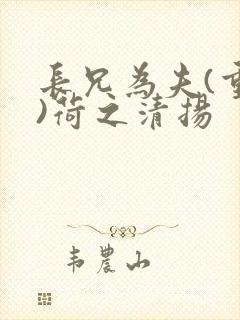 長兄為夫(重
)荷之清揚
韦農山